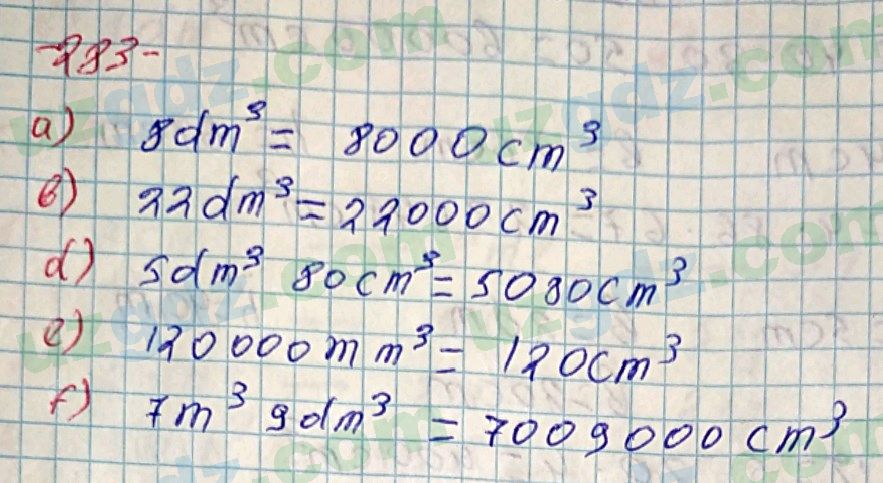 -283-
a) 8dm³ = 8000cm³
b) 22dm³ = 22000cm³
d) 5dm³ 80cm³ = 5080cm³
e) 120000mm³ = 120cm³
f) 7m³ 9dm³ = 7009000cm³